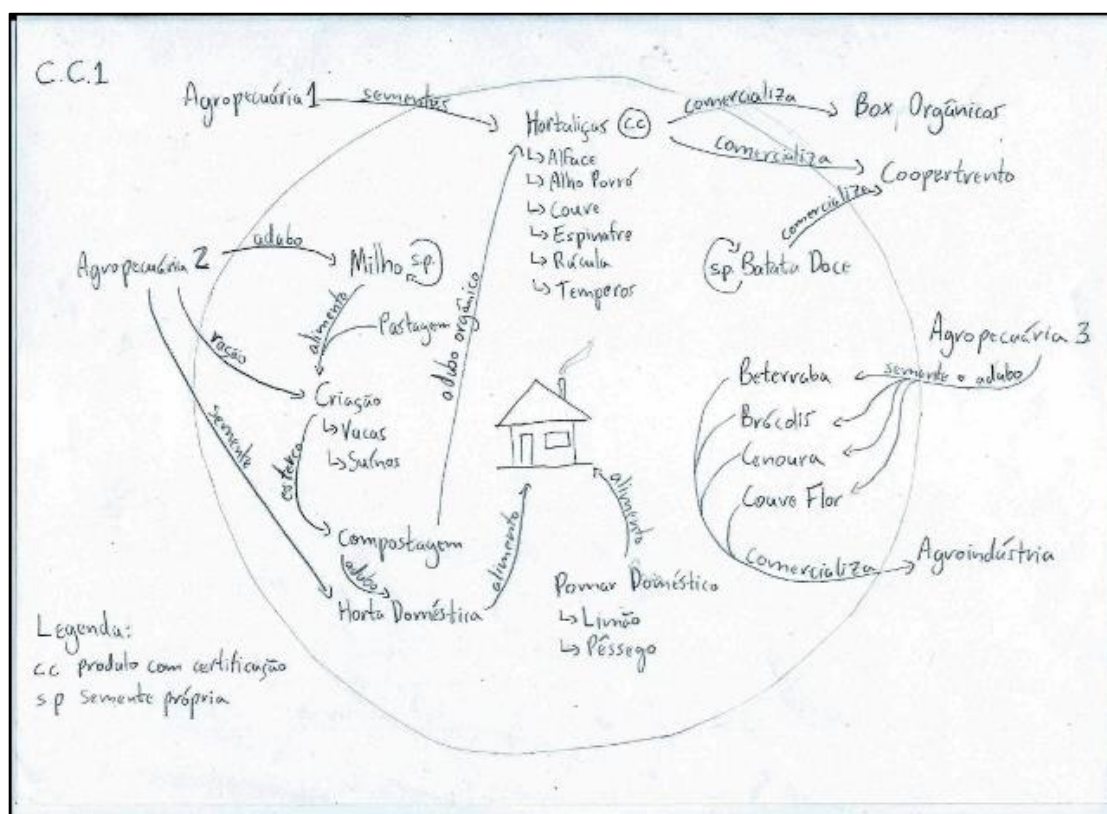 C.C.1
Agropecuária 1
sementes
Hortaliças cc
↳ Alface
↳ Alho Porró
↳ Couve
↳ Espinafre
↳ Rúcula
↳ Temperos
comercializa
Box Orgânicos
comercializa
Coopertrento
comercializa
sp Batata Doce
Agropecuária 2
adubo
Milho sp
alimento
Pastagem
ração
Criação
↳ Vacas
↳ Suínos
semente
esterco
Compostagem
adubo orgânico
adubo
Horta Doméstica
alimento
alimento
Pomar Doméstico
↳ Limão
↳ Pêssego
Agropecuária 3
semente e adubo
Beterraba
Brócolis
Cenoura
Couve Flor
comercializa
Agroindústria
Legenda:
cc produto com certificação
sp semente própria